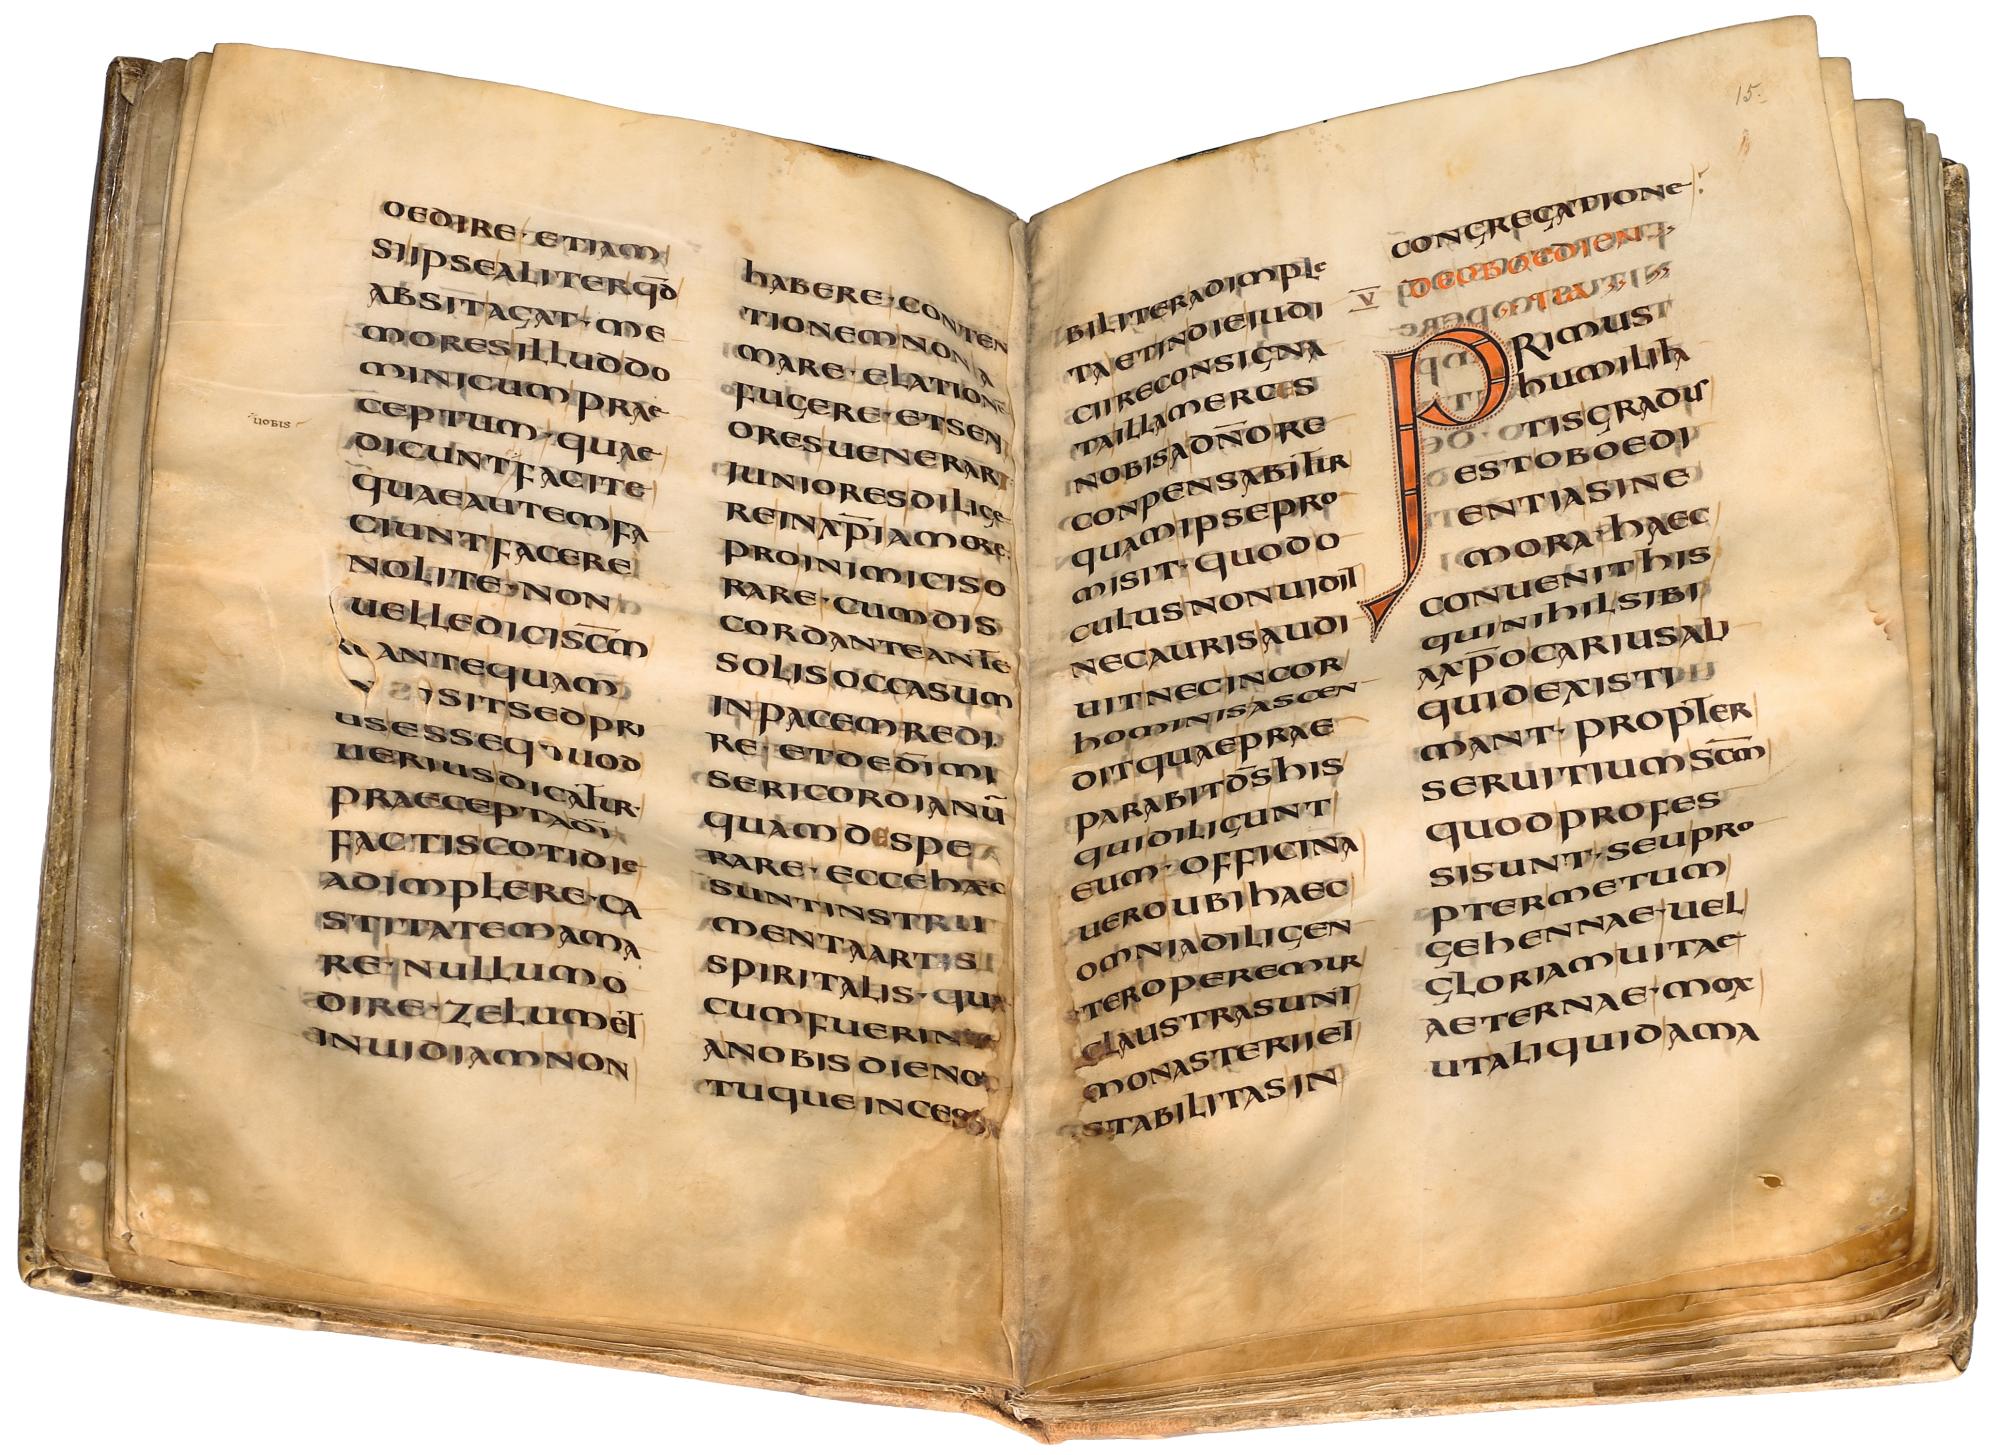 OEDIRE·ETIAM
SIIPSEALITERQD̄
ABSITAGAT·ME
MORESILLUDDO
MINICUMPRAE
CEPTUM·QUAE
DICUNTFACITE
QUAEAUTEMFA
CIUNTFACERE
NOLITE·NON
UELLEDICISC̄M
ANTEQUAM
SITSEDPRI
USESSEQUOD
UERIUSDICATUR·
PRAECEPTADI
FACTISCOTIDIE
ADIMPLERE·CA
STITATEMAMA
RE·NULLUMO
DIRE·ZELUMET
INUIDIAMNON
UOBIS
HABERE·CONTEN
TIONEMNONA
MARE·ELATIONE
FUGERE·ETSENI
ORESUENERARI
JUNIORESDILIGE
REINXP̄IAMORE
PROINIMICISO
RARE·CUMDIS
CORDANTEANTE
SOLISOCCASUM
INPACEMREDI
RE·ETDED̄IMI
SERICORDIANŪ
QUAMDESPE
RARE·ECCEHAEC
SUNTINSTRU
MENTAARTIS
SPIRITALIS·QUAE
CUMFUERINT
ANOBISDIENOC
TUQUEINCESSA
15.
BILITERADIMPLE
TAETINDIEIUDI
CIIRECONSIGNA
TAILLAMERCES
NOBISADN̄ORE
CONPENSABITUR
QUAMIPSEPRO
MISIT·QUODO
CULUSNONUIDIT
NECAURISAUDI
UITNECINCOR
HOMINISASCEN
DITQUAEPRAE
PARABITD̄SHIS
QUIDILIGUNT
EUM·OFFICINA
UEROUBIHAEC
OMNIADILIGEN
TEROPEREMUR
CLAUSTRASUNT
MONASTERIIET
STABILITASIN
CONGREGATIONE·
V̄ DEOBOEDIENT
TIA
PRIMUS
HUMILITA
TISGRADUS
ESTOBOEDI
ENTIASINE
MORA·HAEC
CONUENITHIS
QUINIHILSIBI
AXP̄OCARIUSALI
QUIDEXISTI
MANT·PROPTER
SERUITIUMSC̄M
QUODPROFES
SISUNT·SEUPRO
PTERMETUM
GEHENNAE·UEL
GLORIAMUITAE
AETERNAE·MOX
UTALIQUIDAMA